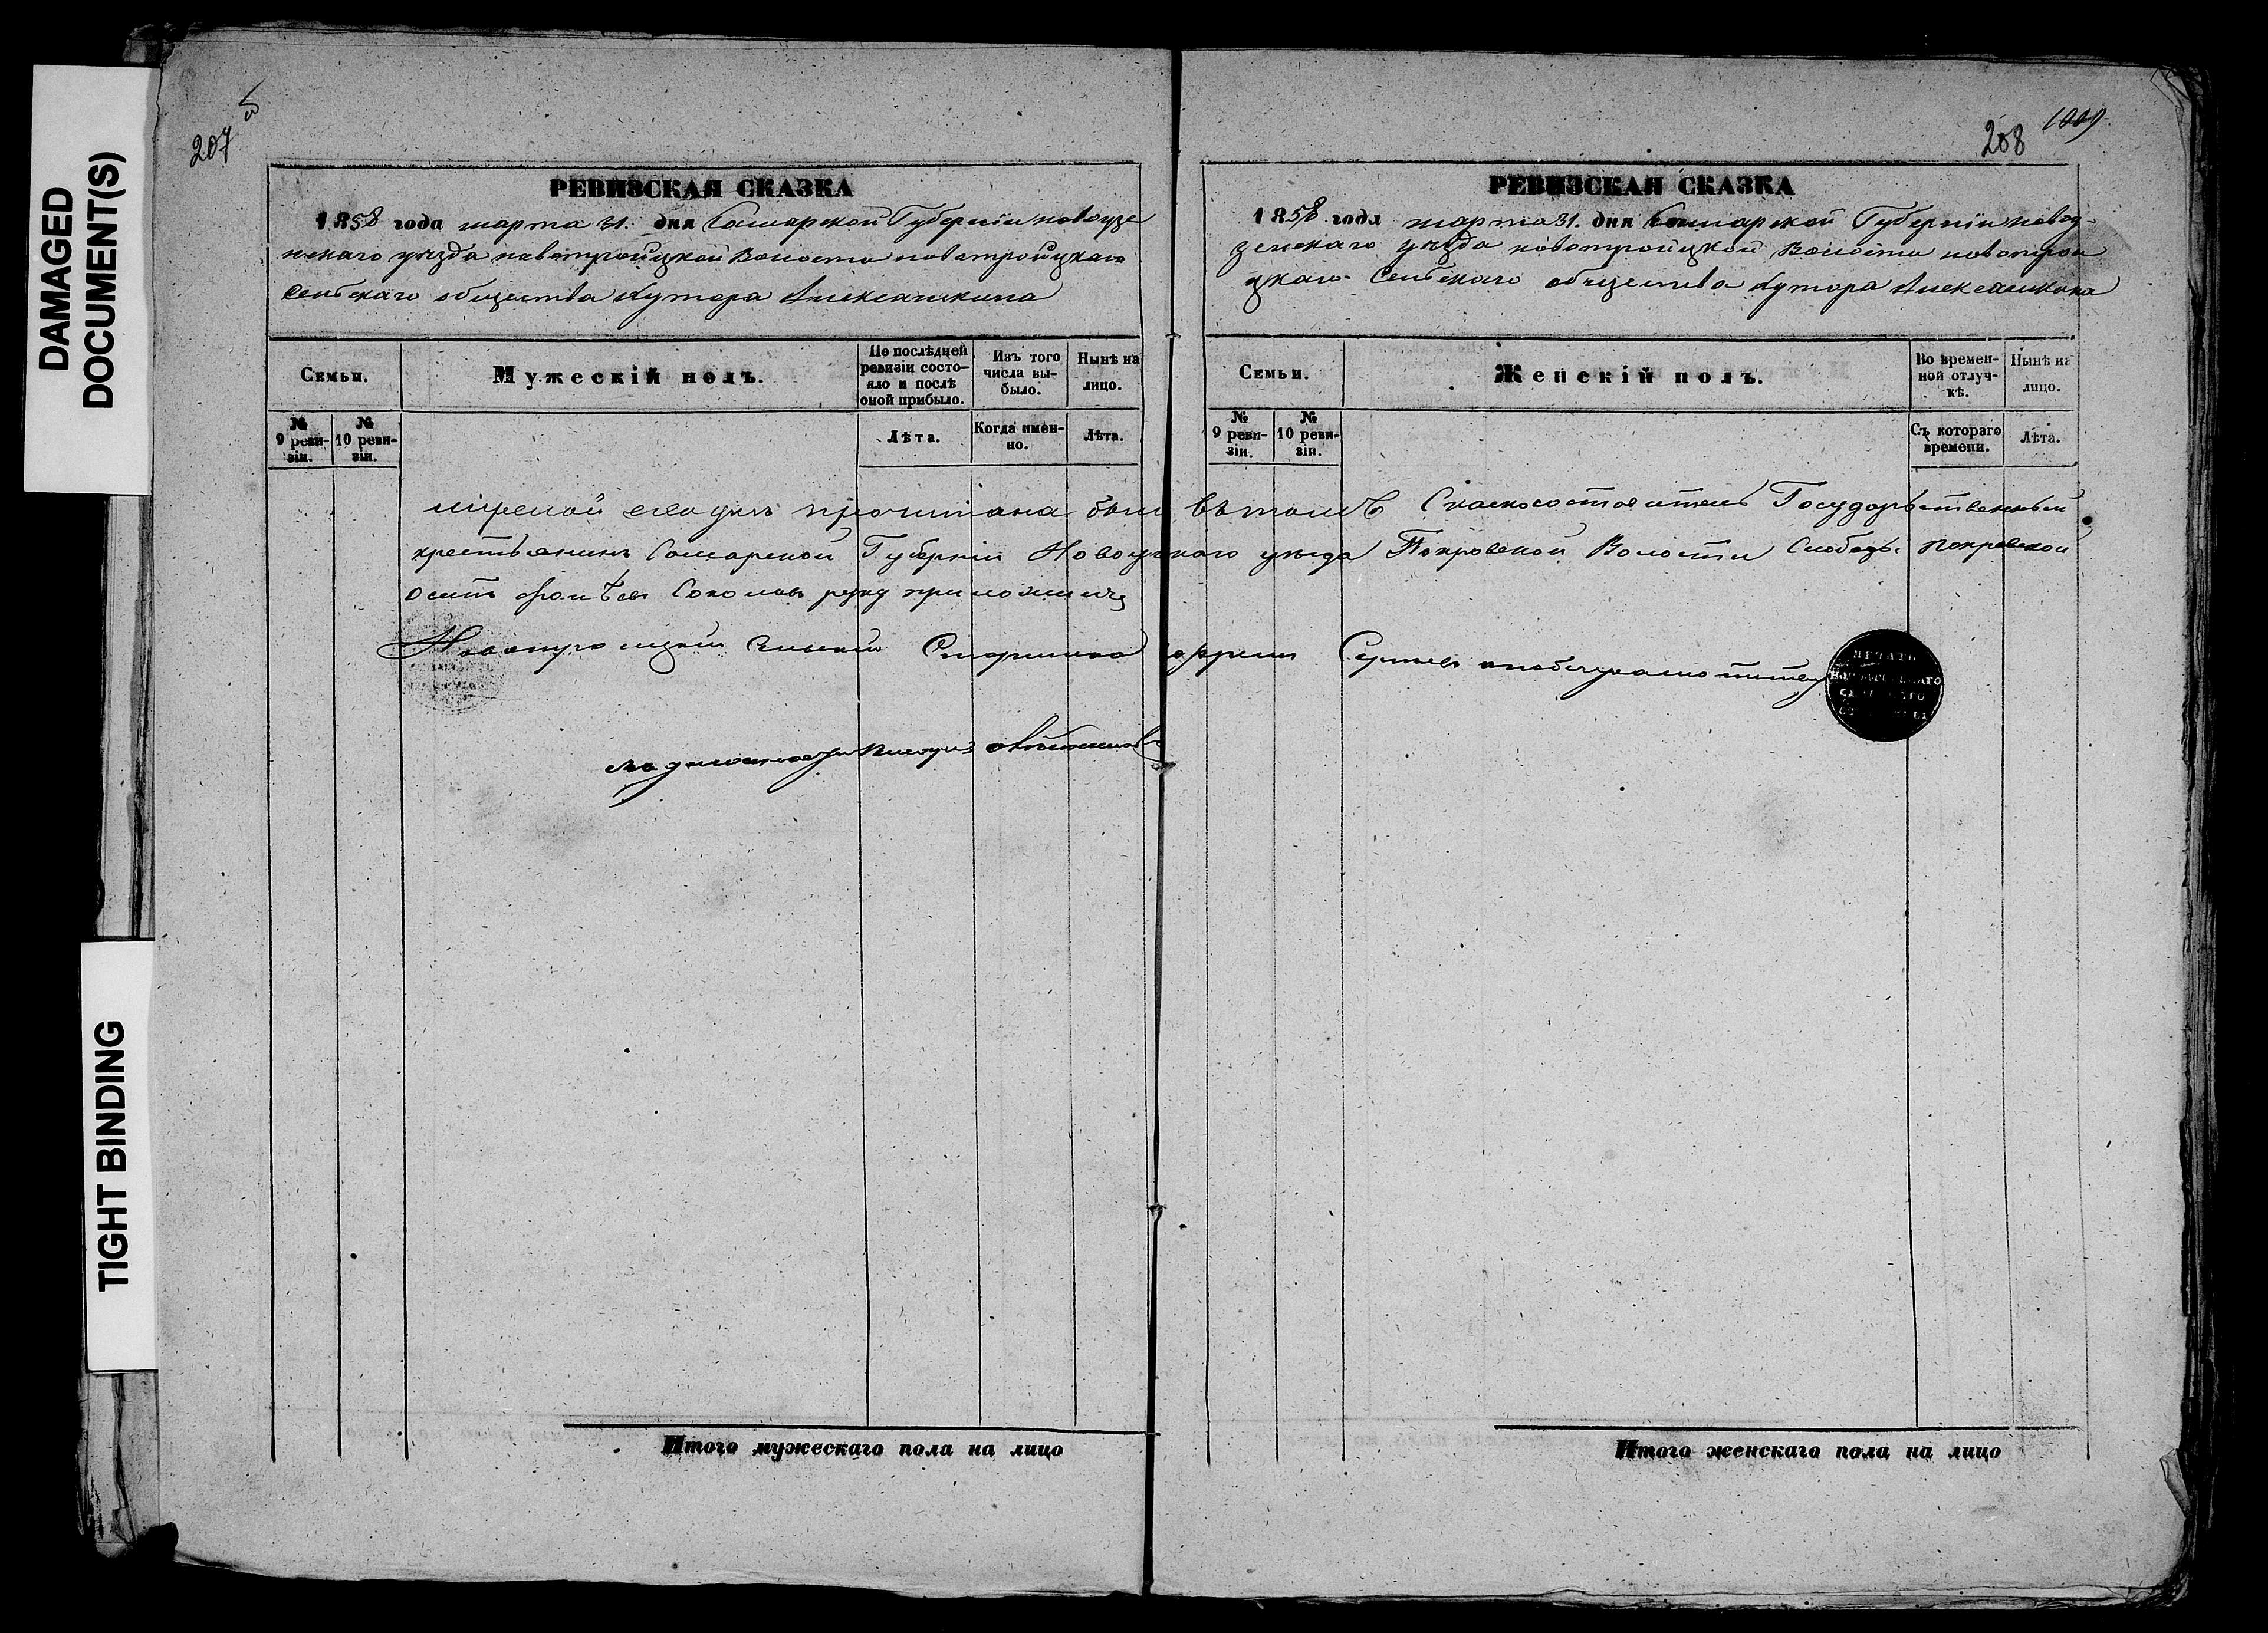 DAMAGED
DOCUMENT(S)
TIGHT BINDING
207
РЕВИЗСКАЯ СКАЗКА
1858 года марта 31. дня Самарской Губерніи новоузе
нскаго уѣзда новотроицкой Волости новотроицкаго
Сельскаго общества Хутора Алексашкина
Семьи.
Мужескій полъ.
По послѣдней
ревизіи состо-
яло и послѣ
оной прибыло.
Изъ того
числа вы-
было.
Нынѣ на
лицо.
№
9 реви-
зіи.
№
10 реви-
зіи.
Лѣта.
Когда имен-
но.
Лѣта.
208 1009
РЕВИЗСКАЯ СКАЗКА
1858 года марта 31. дня Самарской Губерніи новоу-
зенскаго уѣзда новотроицкой Волости новотрои
цкаго Сельскаго общества Хутора Алексашкина
Семьи.
Женскій полъ.
Во времен-
ной отлуч-
кѣ.
Нынѣ на
лицо.
№
9 реви-
зіи.
№
10 реви-
зіи.
Съ котораго
времени.
Лѣта.
прочитана была въ томъ Сказкосоставитель Государственный
крестьянинъ Самарской Губерніи уѣзда Покровской Волости Слободы Покровской
Соколовъ руку приложилъ
Новотроицкой Старшина
ПЕЧАТЬ
Итого мужескаго пола на лицо
Итого женскаго пола на лицо